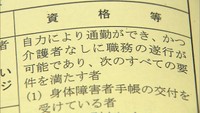 資格等
自力により通勤ができ、かつ
介護者なしに職務の遂行が
可能であり、次のすべての要
件を満たす者
(1) 身体障害者手帳の交付を
受けている者
者
い
ジ